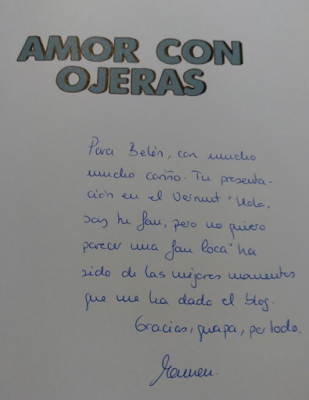 AMOR CON
OJERAS
Para Belén, con mucho
mucho cariño. Tu presenta-
ción en el Vermut "Hola,
soy tu fan, pero no quiero
parecer una fan loca" ha
sido de las mejores momentos
que me ha dado el blog.
Gracias, guapa, por todo.